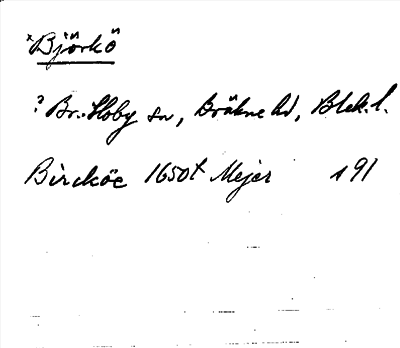 *Björkö
? Br.-Hoby sn, Bräkne hd, Blek. l.
Bircköe 1650t Mejer 191